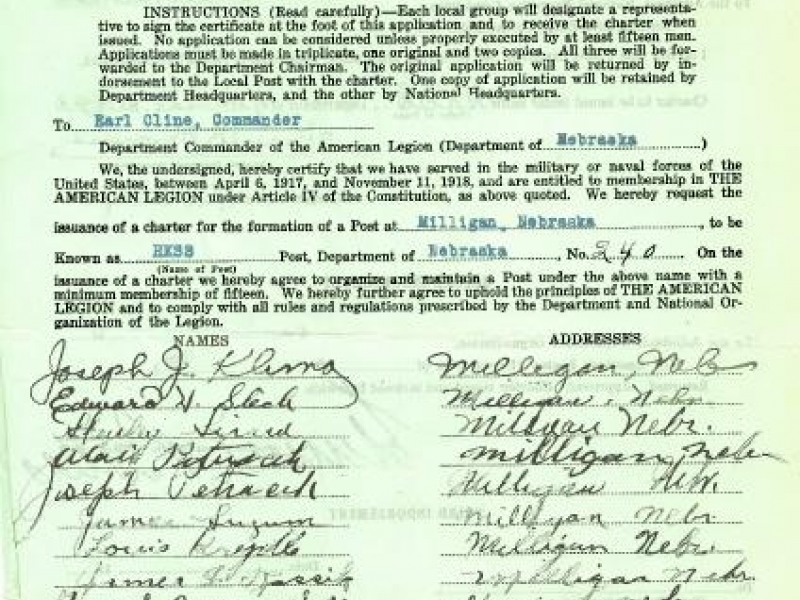 INSTRUCTIONS (Read carefully)—Each local group will designate a representa-
tive to sign the certificate at the foot of this application and to receive the charter when
issued. No application can be considered unless properly executed by at least fifteen men.
Applications must be made in triplicate, one original and two copies. All three will be for-
warded to the Department Chairman. The original application will be returned by in-
dorsement to the Local Post with the charter. One copy of application will be retained by
Department Headquarters, and the other by National Headquarters.
To Earl Cline, Commander
Department Commander of the American Legion (Department of Nebraska)
We, the undersigned, hereby certify that we have served in the military or naval forces of the
United States, between April 6, 1917, and November 11, 1918, and are entitled to membership in THE
AMERICAN LEGION under Article IV of the Constitution, as above quoted. We hereby request the
issuance of a charter for the formation of a Post at Milligan, Nebraska, to be
Known as HKSS Post, Department of Nebraska, No. 240 On the
(Name of Post)
issuance of a charter we hereby agree to organize and maintain a Post under the above name with a
minimum membership of fifteen. We hereby further agree to uphold the principles of THE AMERICAN
LEGION and to comply with all rules and regulations prescribed by the Department and National Or-
ganization of the Legion.
NAMES ADDRESSES
Joseph J. Klima Milligan, Nebr
Edward V. Slech Milligan, Nebr.
Milligan Nebr.
Milligan, Nebr
Joseph Milligan
James Milligan Nebr
Louis Milligan Nebr.
Milligan Nebr.